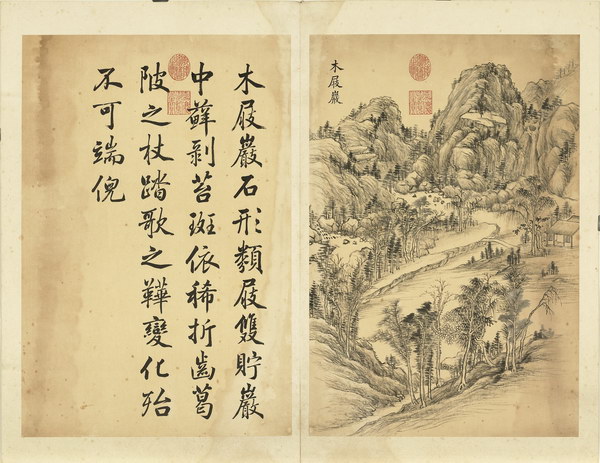 木屐巖
木屐巖石形類屐雙貯巖
中蘚剥苔斑依稀折齒葛
陂之杖踏歌之鞾變化殆
不可端倪